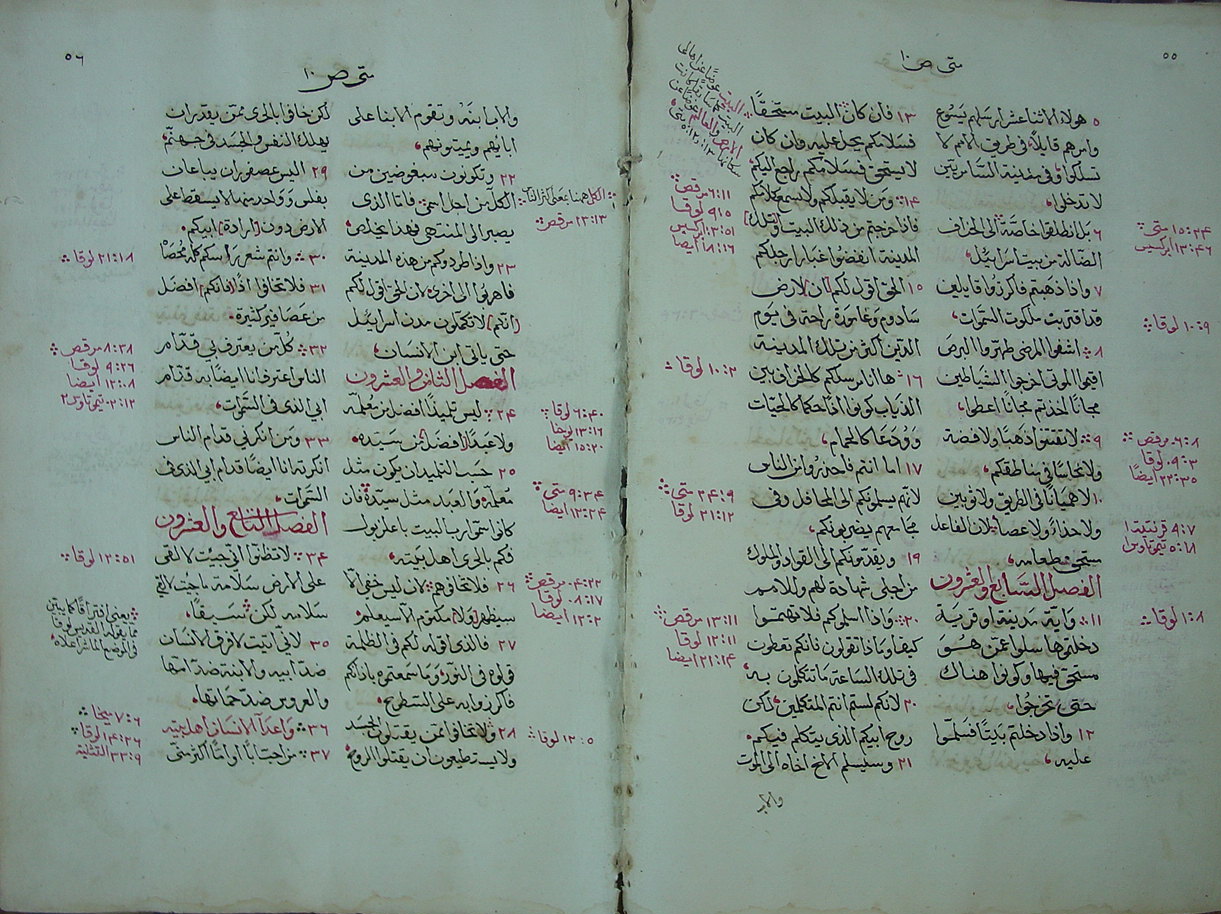 ٥٥
متى ص ١٠
٥ هولاء الاثنا عشر ارسلهم يسوع
وامرهم قايلًا في طريق الامم لا
تسلكوا وفي مدينة السامريين
لا تدخلوا
٦ بل انطلقوا خاصة الى الخراف
الضالة من بيت اسراييل
٧ واذا ذهبتم فاكرزوا قايلين
قد اقتربت ملكوت السموات
٨ اشفوا المرضى طهروا البرص
اقيموا الموتى اخرجوا الشياطين
مجانًا اخذتم مجانًا اعطوا
٩ لا تقتنوا ذهبًا ولا فضة
ولا نحاسًا في مناطقكم
١٠ لا هميانًا في الطريق ولا ثوبين
ولا حذاءً ولا عصا لان الفاعل
مستحق طعامه
الفصل السابع والعشرون
١١ واية مدينة او قرية
دخلتموها سلوا عمن هو
مستحق فيها وكونوا هناك
حتى تخرجوا
١٢ واذا دخلتم بيتًا فسلموا
عليه
١٣ فان كان البيت مستحقًا
فسلامكم يحل عليه فان كان
لا يستحق فسلامكم راجع اليكم
١٤ ومن لا يقبلكم ولا يسمع كلامكم
فاذا خرجتم من ذلك البيت او تلك
المدينة انفضوا غبار ارجلكم
١٥ الحق اقول لكم ان لارض
سادوم وغامورة راحة في يوم
الدين اكثر من تلك المدينة
١٦ ها انا مرسلكم كالخراف بين
الذياب كونوا اذًا حكما كالحيات
وودعا كالحمام
١٧ اما انتم فاحذروا من الناس
لانهم يسلمونكم الى المحافل وفي
مجامعهم يضربونكم
١٩ ويقدمونكم الى القواد والملوك
من اجلي شهادة لهم وللامم
واذا اسلموكم فلا تهتموا
كيف او ماذا تقولون فانكم تعطون
في تلك الساعة ما تتكلمون به
٢٠ لانكم لستم انتم المتكلمين لكن
روح ابيكم الذي يتكلم فيكم
٢١ وسيسلم الاخ اخاه الى الموت
والاب
١٥:٢٤ متى
١٣:٤٦ ابركسيس
١٠:٩ لوقا
٦:٨ مرقص
٩:٣ لوقا
٢٢:٣٥ ايضًا
٩:٧ قرنتيه ١
٥:١٨ تيموتاوس ١
١٠:٨ لوقا
٦:١١ مرقص
٩:٥ لوقا
١٣:٥١ ابركسيس
١٨:٦ ايضا
١٠:٣ لوقا
٢٤:٩ متى
٢١:١٢ لوقا
١٣:١١ مرقص
١٢:١١ لوقا
٢١:١٤ ايضا
٥٦
متى ص ١٠
والاب ابنه وتقوم الابنا على
ابايهم ويميتونهم
٢٢ وتكونون مبغوضين من
الكل من اجل اسمي فاما الذي
يصبر الى المنتهى فهذا يخلص
٢٣ واذا طردوكم من هذه المدينة
فاهربوا الى اخرى لان الحق اقول لكم
انكم لا تكملون مدن اسراييل
حتى ياتي ابن الانسان
الفصل الثامن والعشرون
٢٤ ليس تلميذًا افضل من معلمه
ولا عبدًا افضل من سيده
٢٥ حسب التلميذ ان يكون مثل
معلمه والعبد مثل سيده فان
كانوا سموا رب البيت باعل زبول
فكم بالحري اهل بيته
٢٦ فلا تخافوهم لان ليس خفي الا
سيظهر ولا مكتوم الا سيعلم
٢٧ فالذي اقوله لكم في الظلمة
قولوه في النور وما سمعتموه باذانكم
فاكرزوا به على السطوح
٢٨ ولا تخافوا ممن يقتلون الجسد
ولا يستطيعون ان يقتلوا الروح
لكن خافوا بالحرى ممن يقدر ان
يهلك النفس والجسد في جهنم
٢٩ اليس عصفوران يباعان
بفلس وواحد منهما لا يسقط على
الارض دون ارادة ابيكم
٣٠ وانتم شعر راسكم كله محصًا
٣١ فلا تخافوا اذًا فانكم افضل
من عصافير كثيرة
٣٢ كل من يعترف بي قدام
الناس اعترف انا ايضًا به قدام
ابي الذي في السموات
٣٣ ومن انكرني قدام الناس
انكرته انا ايضًا قدام ابي الذي في
السموات
الفصل التاسع والعشرون
٣٤ لا تظنوا اني جيت لالقي
على الارض سلامة ما جيت لالقي
سلامه لكن سيفًا
٣٥ لاني اتيت لافرق الانسان
ضد ابيه والابنة ضد امها
والعروس ضد حماتها
٣٦ واعدآ الانسان اهل بيته
٣٧ من احب ابًا او امًا اكثر مني
الكل ههنا بمعنى كثر الناس
١٣:١٣ مرقص
٦:٤٠ لوقا
١٣:١٦ يوحنا
١٥:٢٠ ايضا
٩:٣٤ متى
١٢:٢٤ ايضا
٤:٢٢ مرقص
٨:١٧ لوقا
١٢:٢ ايضا
١٢:٥ لوقا
٢١:١٨ لوقا
٨:٣٨ مرقص
٩:٢٦ لوقا
١٢:٨ ايضا
٢:١٢ تيموتاوس ٢
١٢:٥١ لوقا
يعني افتراقًا كما يتبين
مما يقوله القديس لوقا
في الموضع الماشر عنه
٧:٦ ميخا
١٤:٢٦ لوقا
٣٣:٩ التثنية